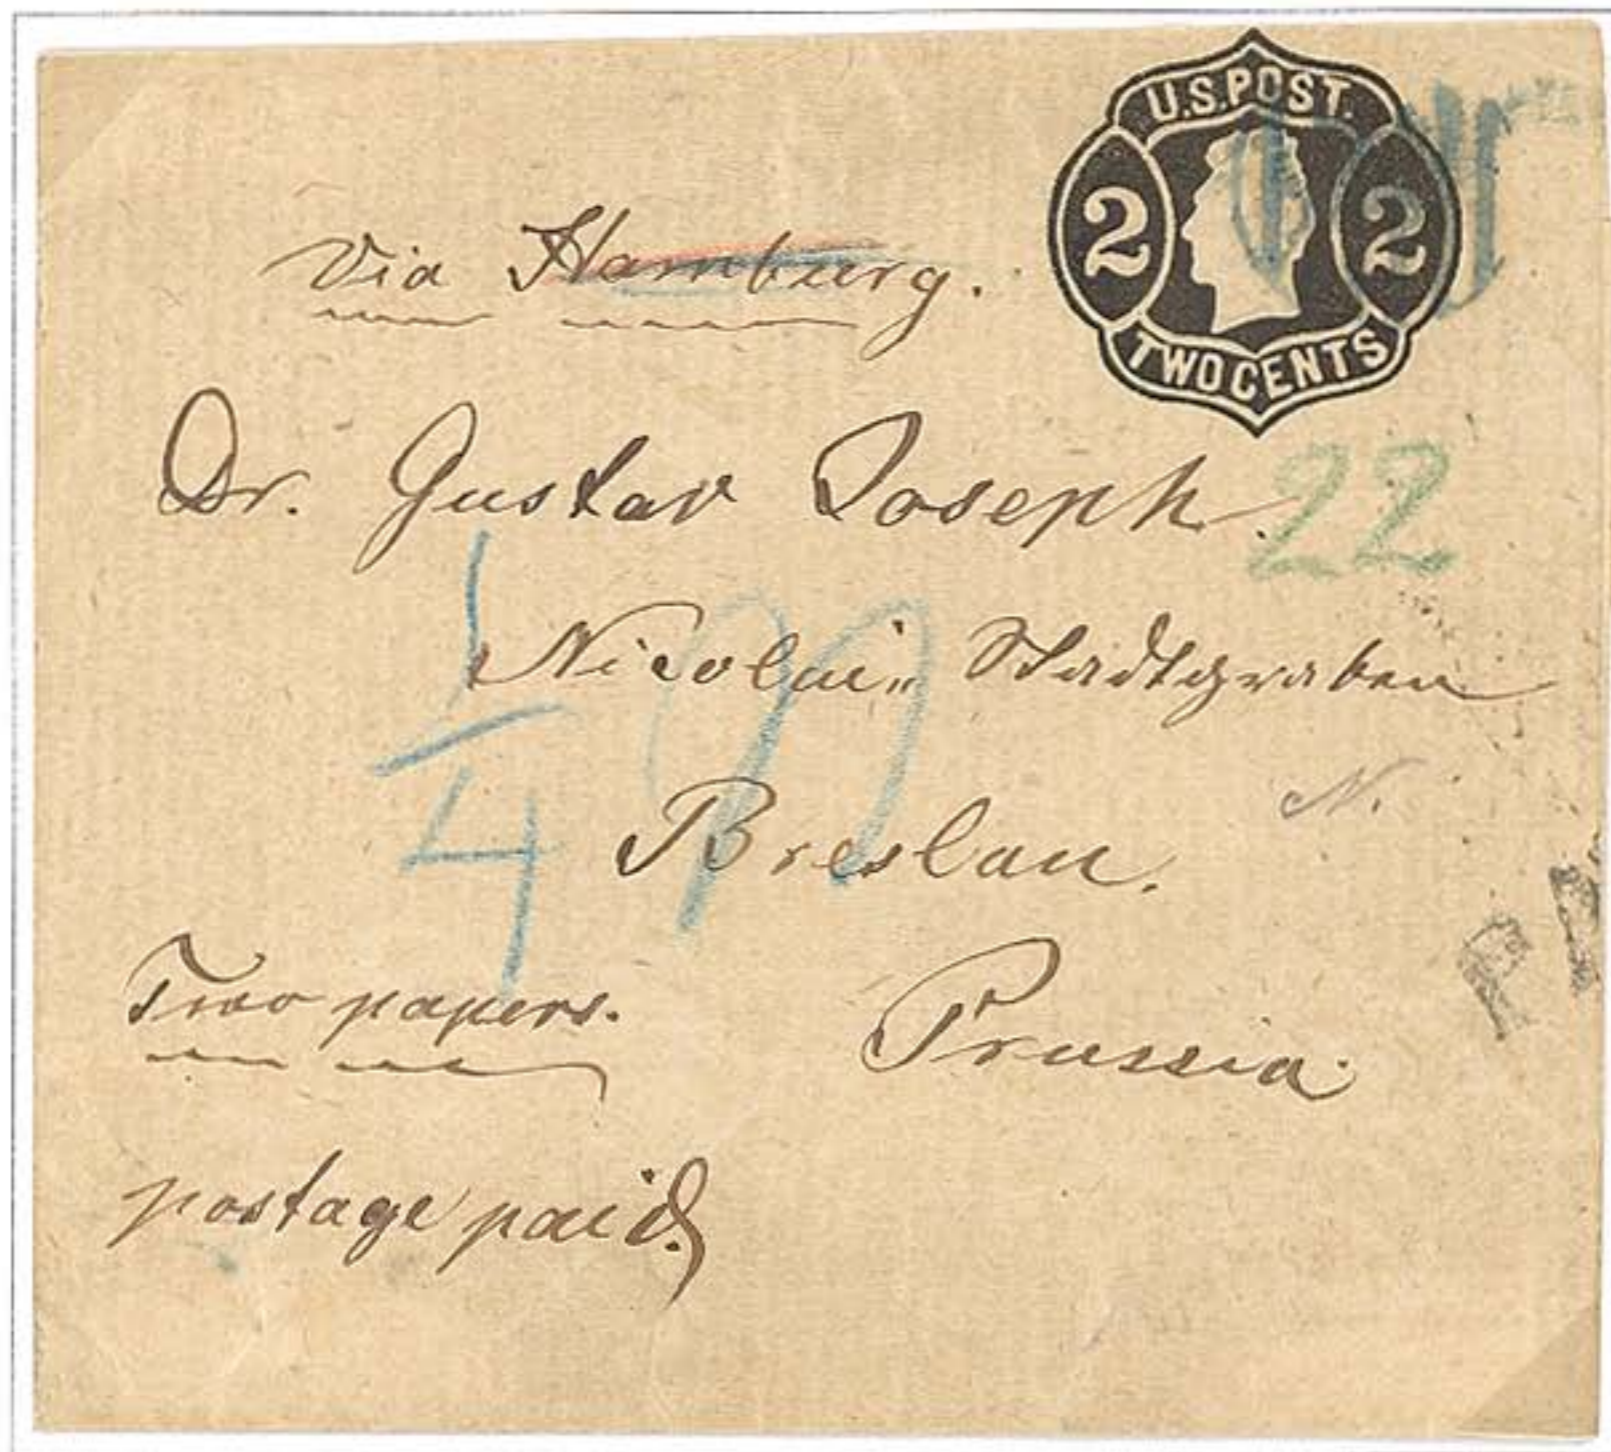 U.S. POST.
2 2
TWO CENTS
Via Hamburg.
Dr. Gustav Joseph.
22
Nicolai„ Stadtgraben
1/4
Breslau.
N.
Two papers.
Prussia.
postage paid.